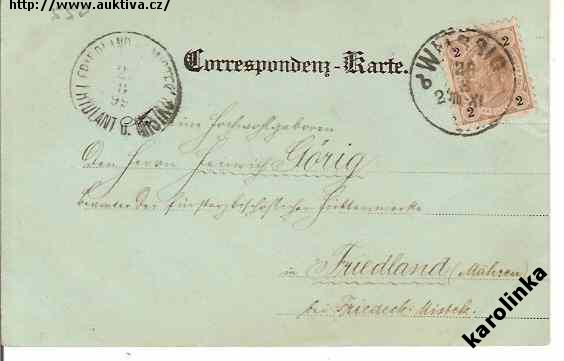 http://www.auktiva.cz/
Correspondenz-Karte.
2 2
2 2
Hochwohlgeboren
Den Herrn Heinrich Görig
Beamter der fürsterzbischöflichen Hüttenwerke
in Friedland (Mähren)
bei Friedeck-Mistek.
karolinka